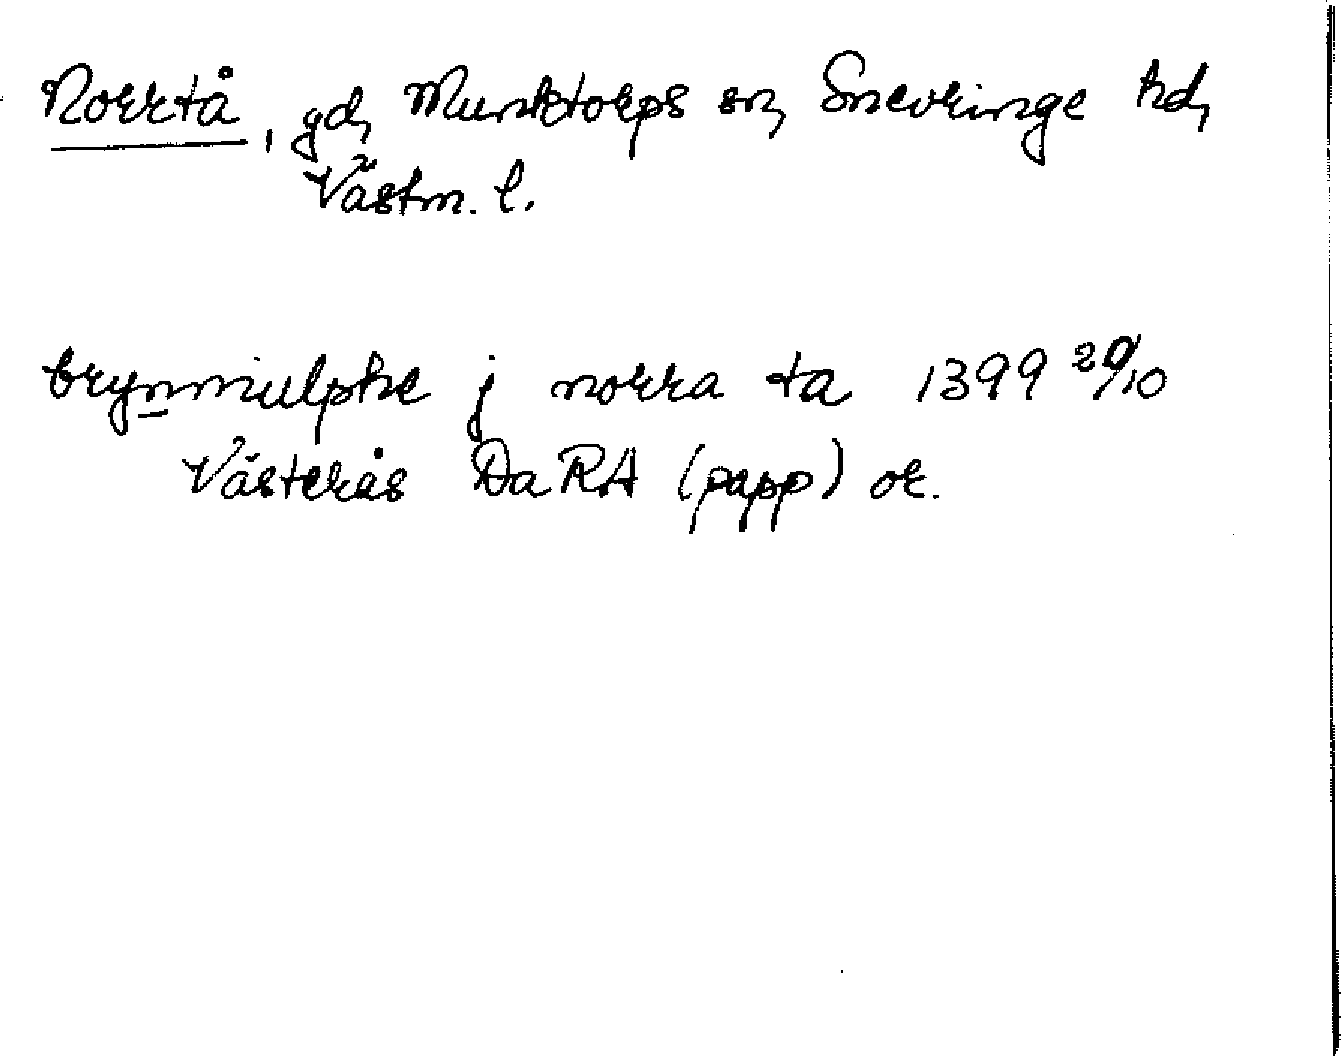 Norrtå, gd, Munktorps sn, Snevringe hd,
Västm. l.
brynniulphe j norra ta 1399 20/10
Västerås DaRA (papp) or.